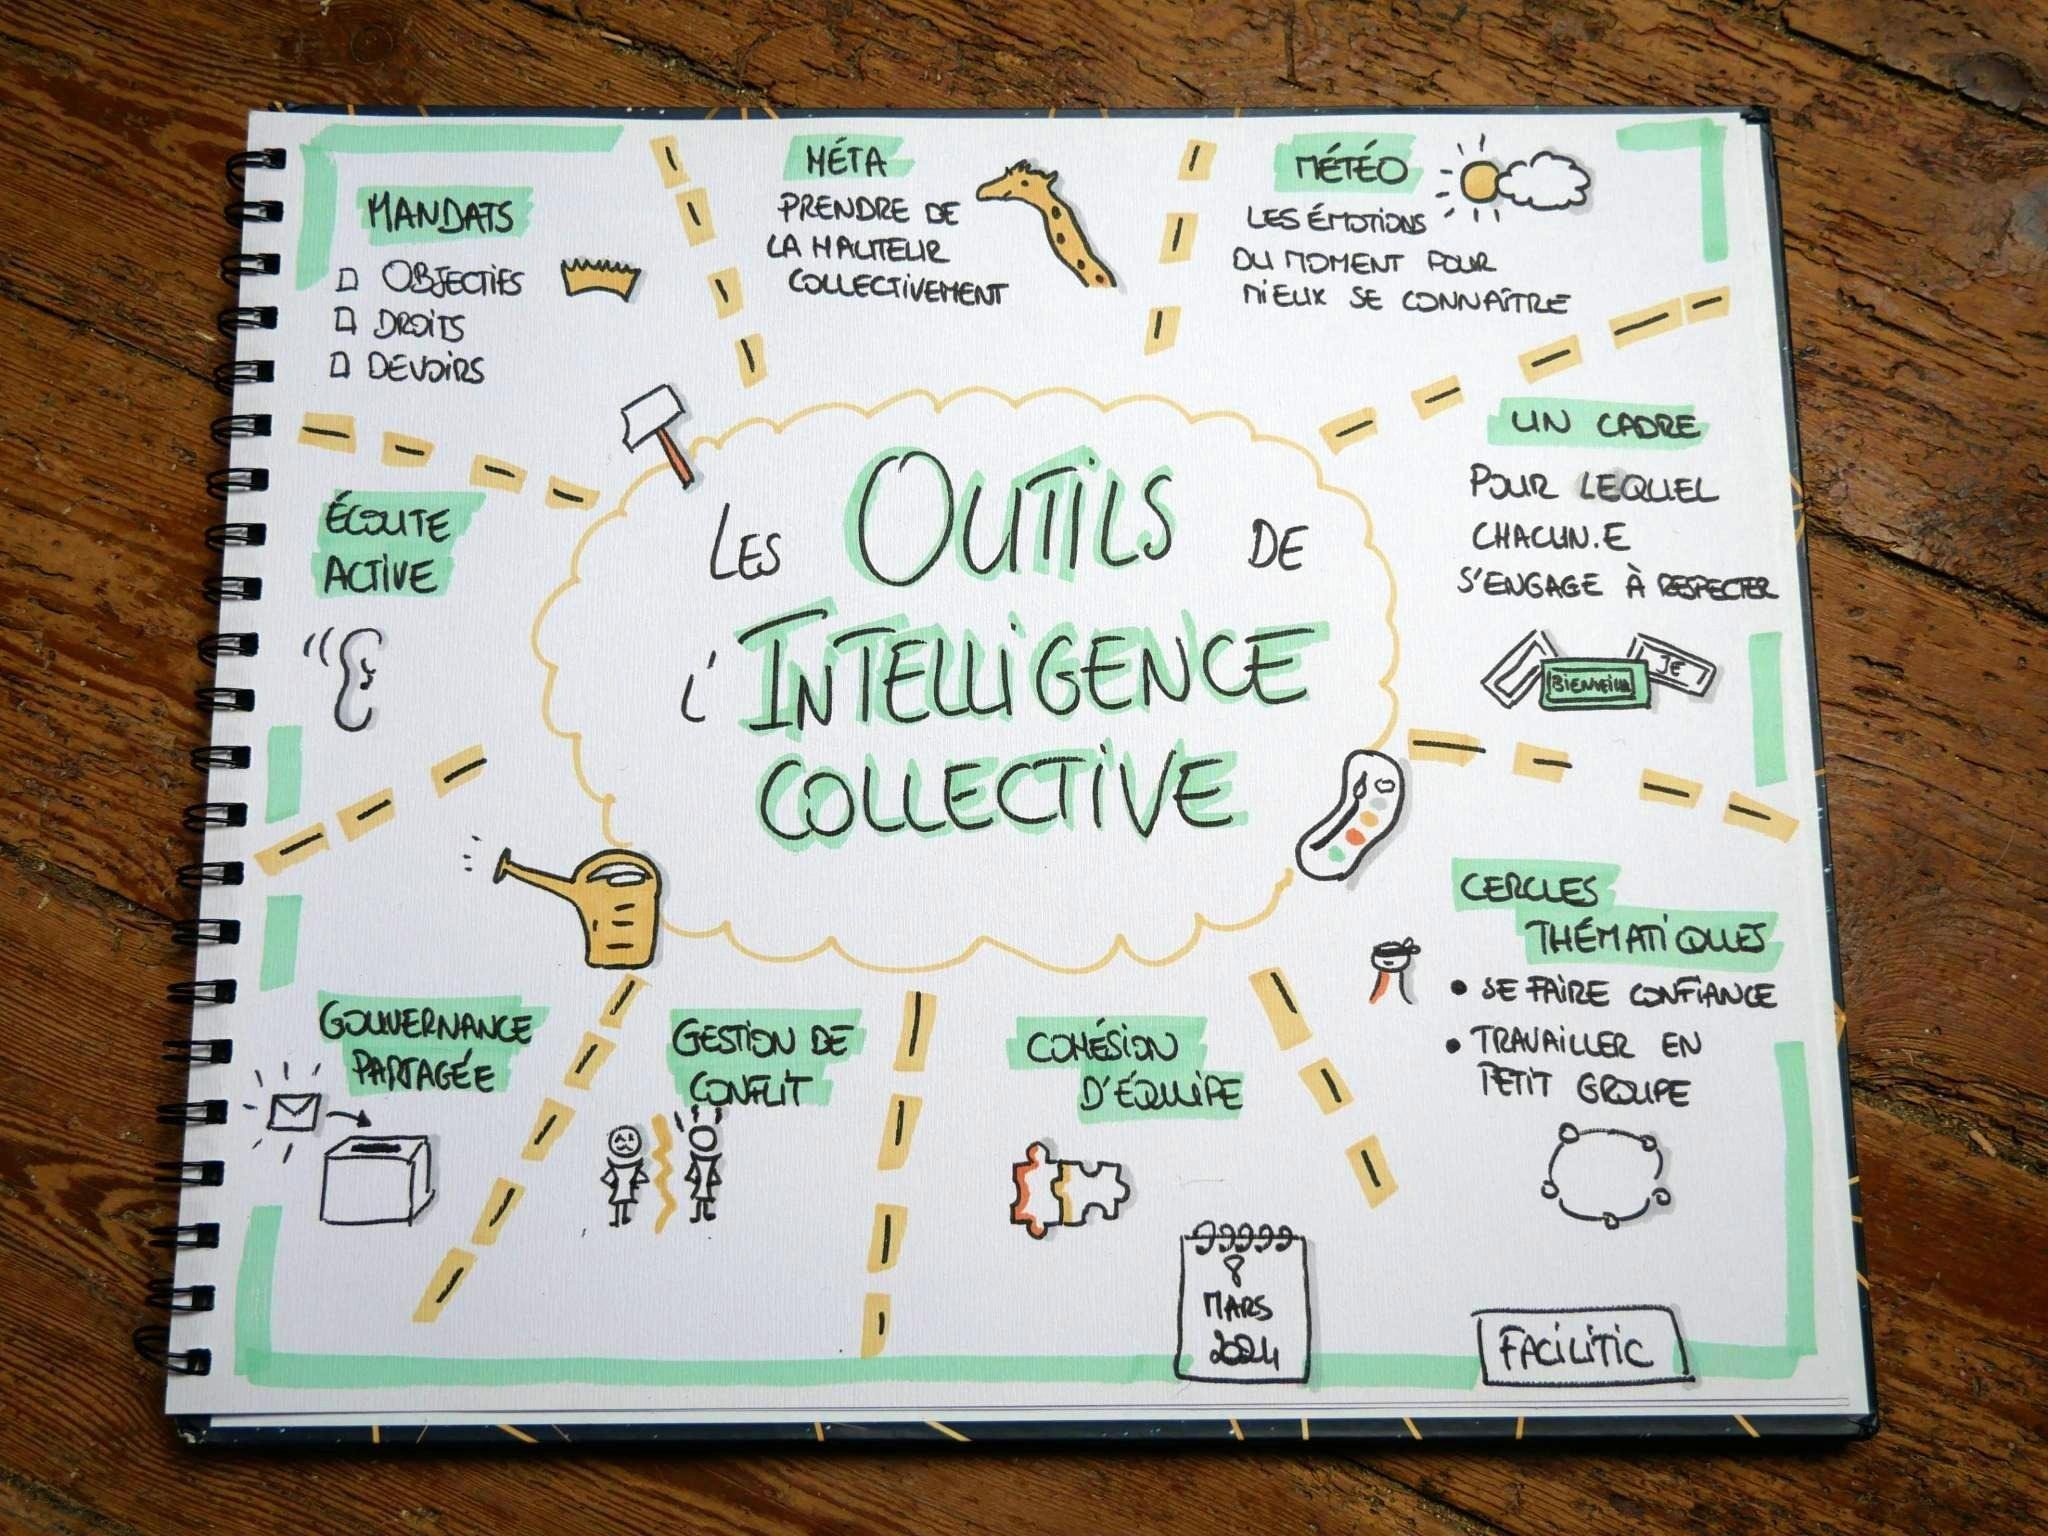 MANDATS
OBJECTIFS
DROITS
DEVOIRS
MÉTA
PRENDRE DE
LA HAUTEUR
COLLECTIVEMENT
MÉTÉO
LES ÉMOTIONS
DU MOMENT POUR
MIEUX SE CONNAÎTRE
UN CADRE
POUR LEQUEL
CHACUN.E
S'ENGAGE À RESPECTER
JE
ÉCOUTE
ACTIVE
LES OUTILS DE
L'INTELLIGENCE
COLLECTIVE
CERCLES
THÉMATIQUES
• SE FAIRE CONFIANCE
• TRAVAILLER EN
PETIT GROUPE
GOUVERNANCE
PARTAGÉE
GESTION DE
CONFLIT
COHÉSION
D'ÉQUIPE
8
MARS
2024
FACILITIC